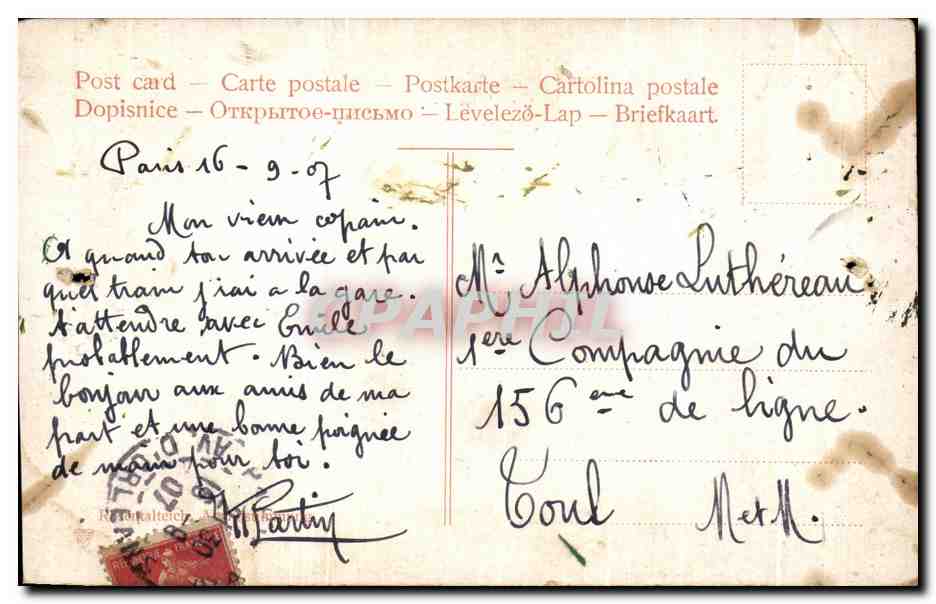 Post card – Carte postale – Postkarte – Cartolina postale
Dopisnice – Открытое-письмо – Levelező-Lap – Briefkaart.
Paris 16 - 9 - 07
Mon vieux copain.
A quand ton arrivée et par
quel train j'irai a la gare.
t'attendre avec Emile
probablement. Bien le
bonjour aux amis de ma
part et une bonne poignée
de main pour toi.
Mr. Alphonse Luthéreau.
1ere Compagnie du
156 eme de ligne.
Toul M et M.
CPAPHIL